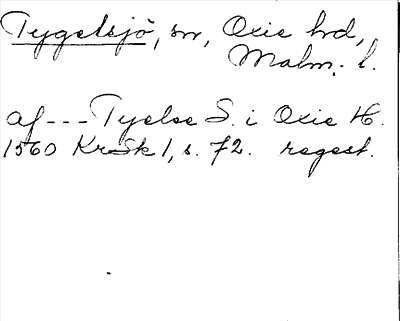 Tygelsjö, sn, Oxie hrd,
Malm. l.
af --- Tyelse S. i Oxie H.
1560 KrSk 1, s. 72. regest.